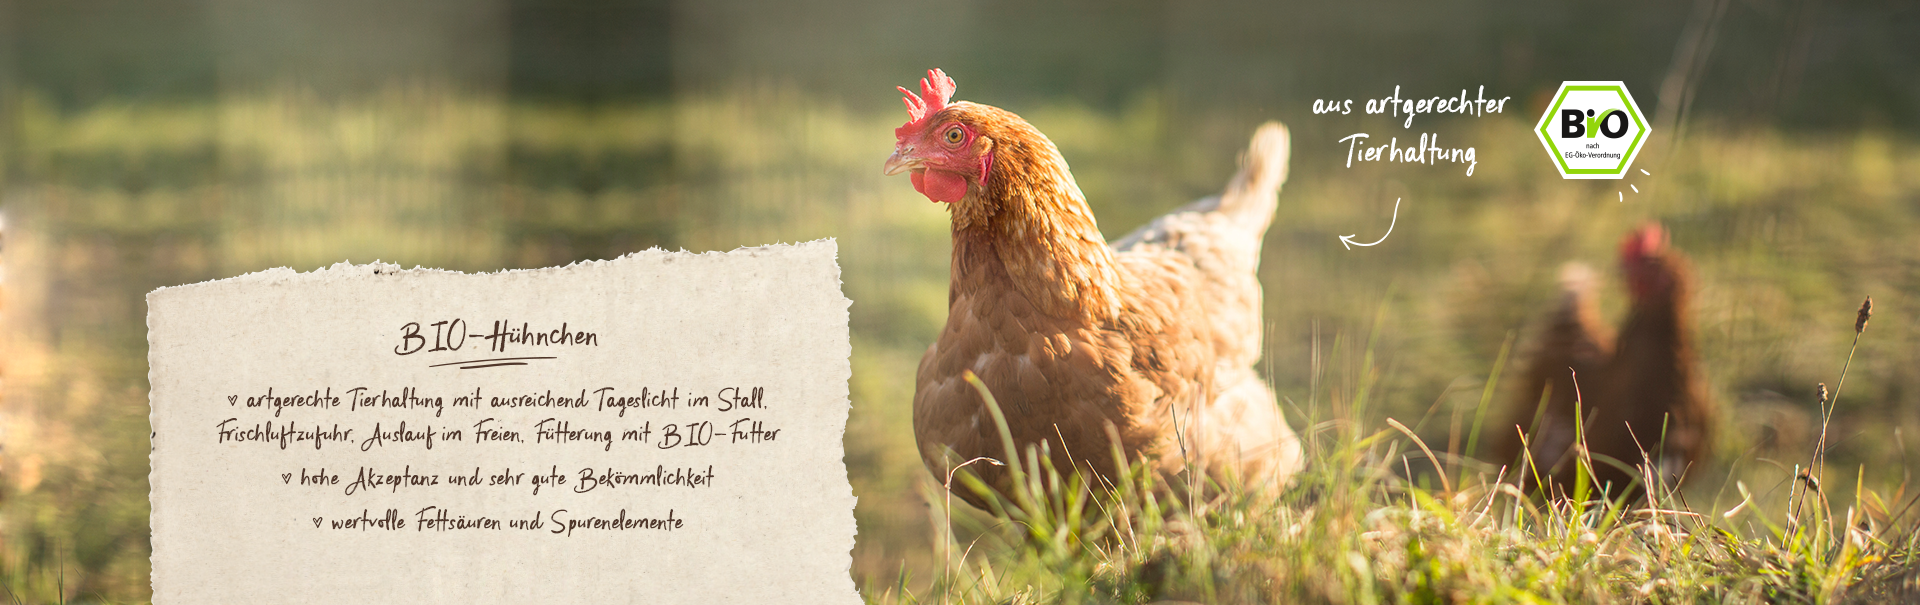 BIO-Hühnchen
♡ artgerechte Tierhaltung mit ausreichend Tageslicht im Stall,
Frischluftzufuhr, Auslauf im Freien, Fütterung mit BIO-Futter
♡ hohe Akzeptanz und sehr gute Bekömmlichkeit
♡ wertvolle Fettsäuren und Spurenelemente
aus artgerechter
Tierhaltung
BiO
nach
EG-Öko-Verordnung